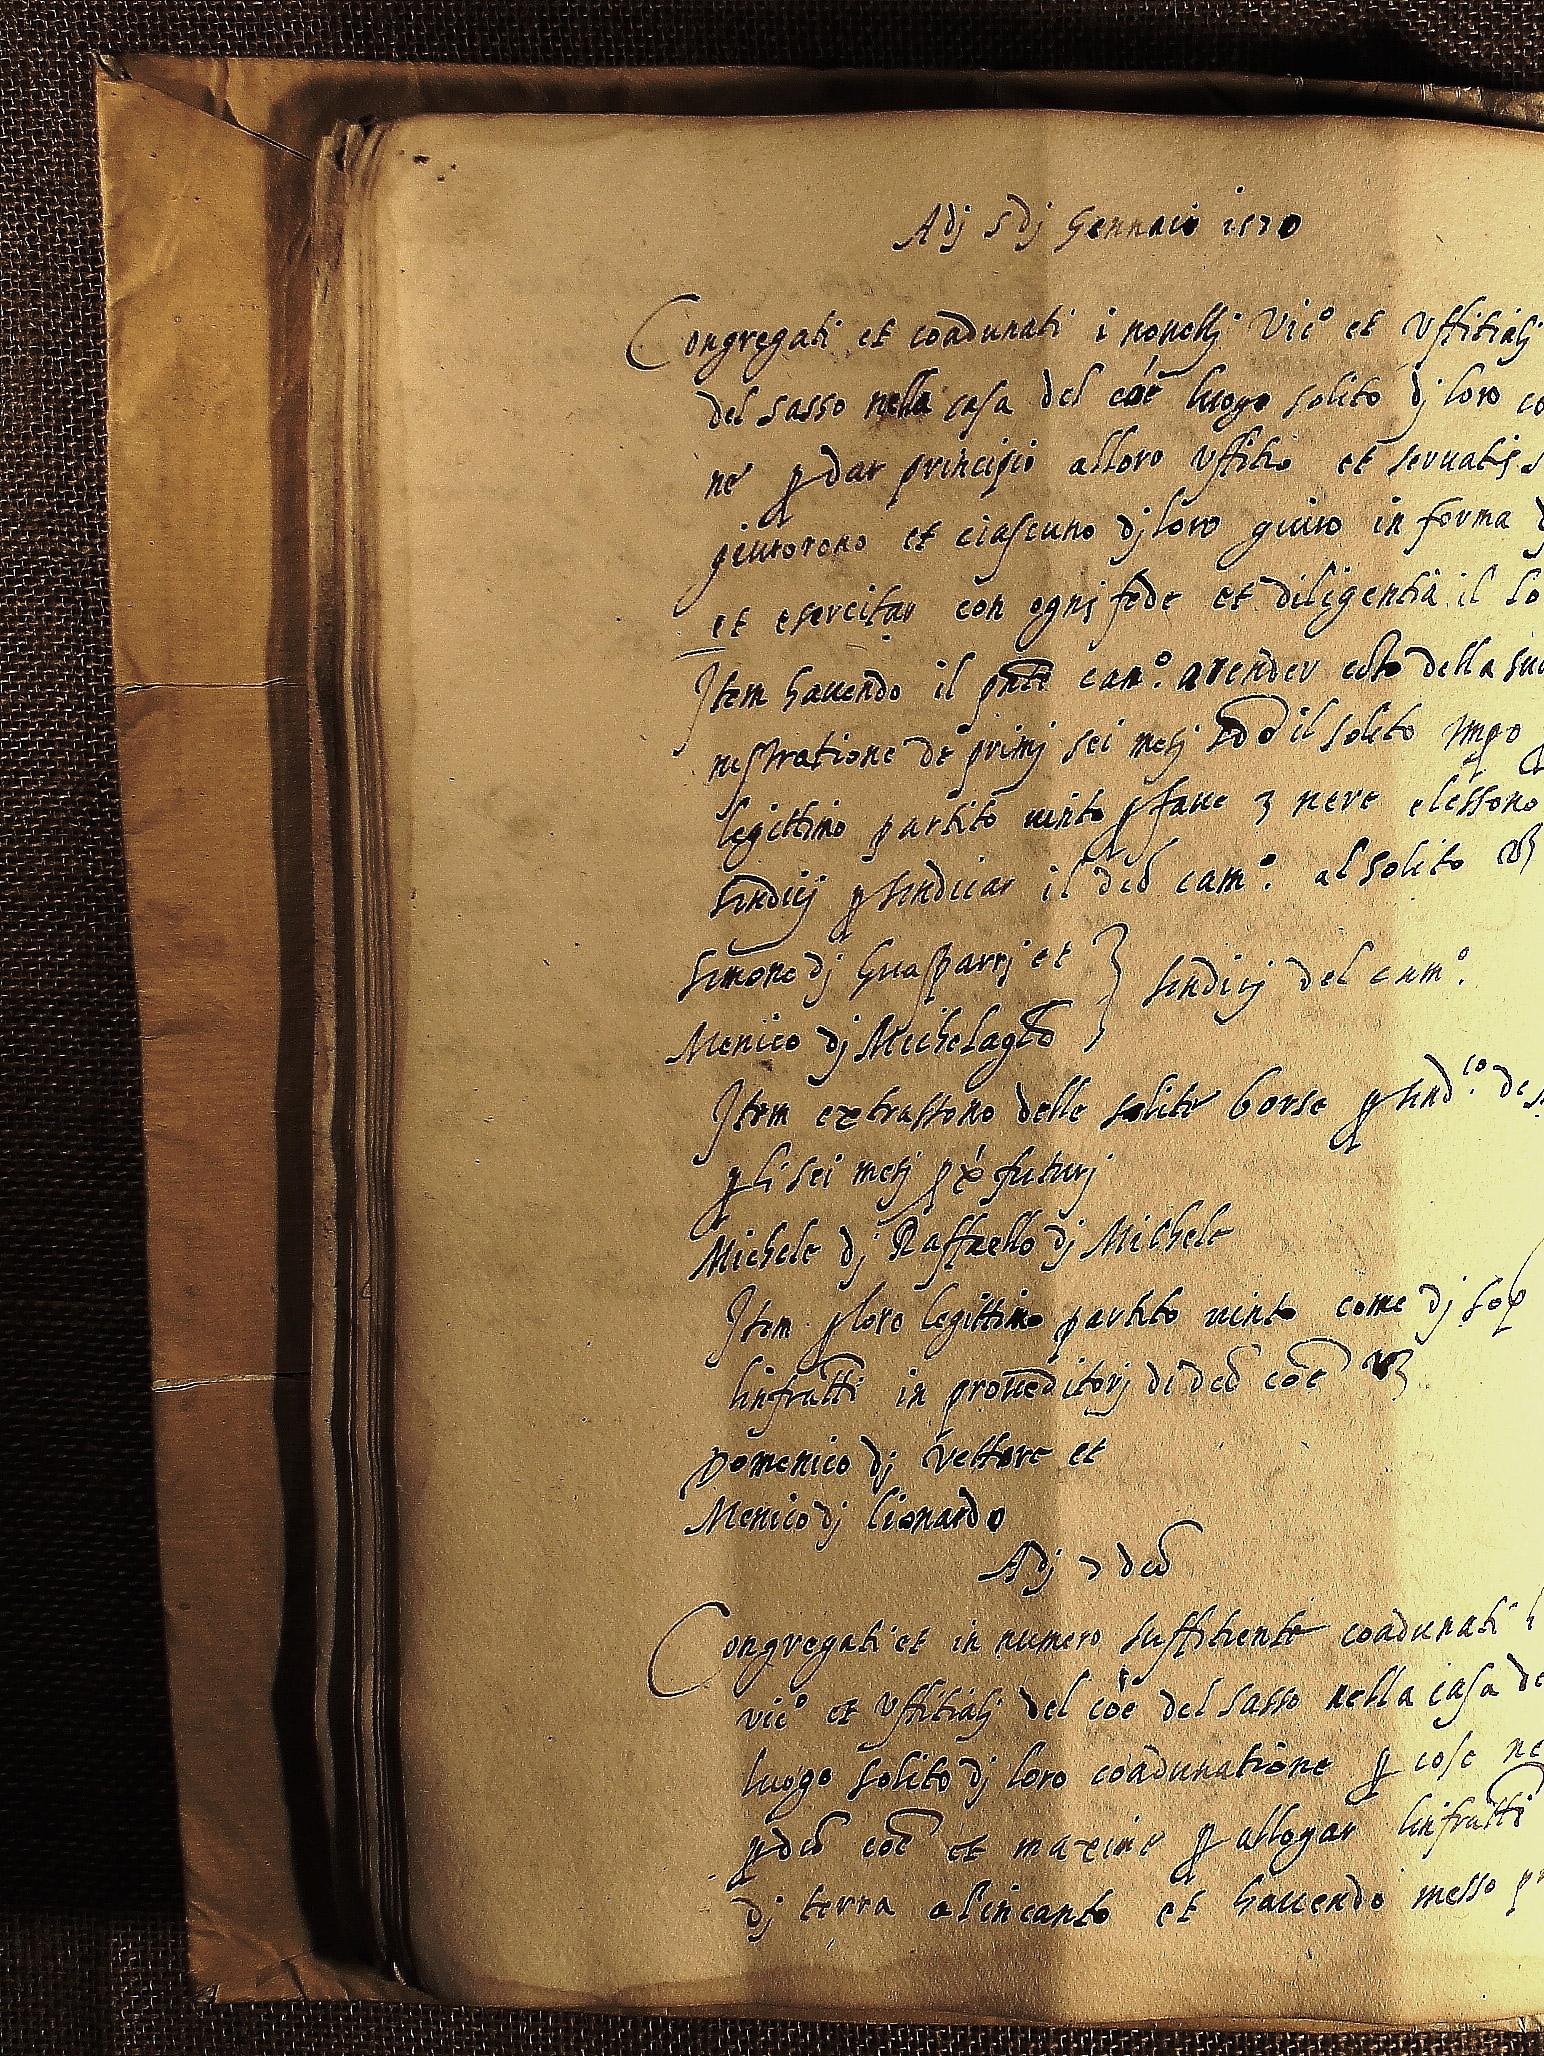 Adj 5 dj Gennaio 1570
Congregati et coadunati i nouellj Vic° et Vffitialj
del sasso nella casa del coe luogo solito dj loro
ne p dar principio alloro vffitio et seruatis
giurorono et ciascuno dj loro giuro in forma
et esercitar con ognj fede et diligentia il
Item hauendo il pnte cam° a render coto della
nistratione de primj sei mesj sdo il solito impo
legittimo partito uinto p faue 3 nere elessono
sindicj p sindicar il dco cam° al solito
simone dj Guasparrj et
sindicj del cam°
Menico dj Michelagto
Item extrassono delle solite borse p sind co
p li sei mesj px futurj
Michele dj Raffaello dj Michele
Item p loro legittimo partito uinto come dj sop
linfratti in proueditorj di dco coe
Domenico dj Vettore et
Menico dj Lionardo
Adj 7 dco
Congregati et in numero suffitiente coadunati
vic° et vffitialj del coe del sasso nella casa
luogo solito dj loro coadunatione p cose
p dco coe et maxime p allogar linfratti
dj terra alincanto et hauendo messo